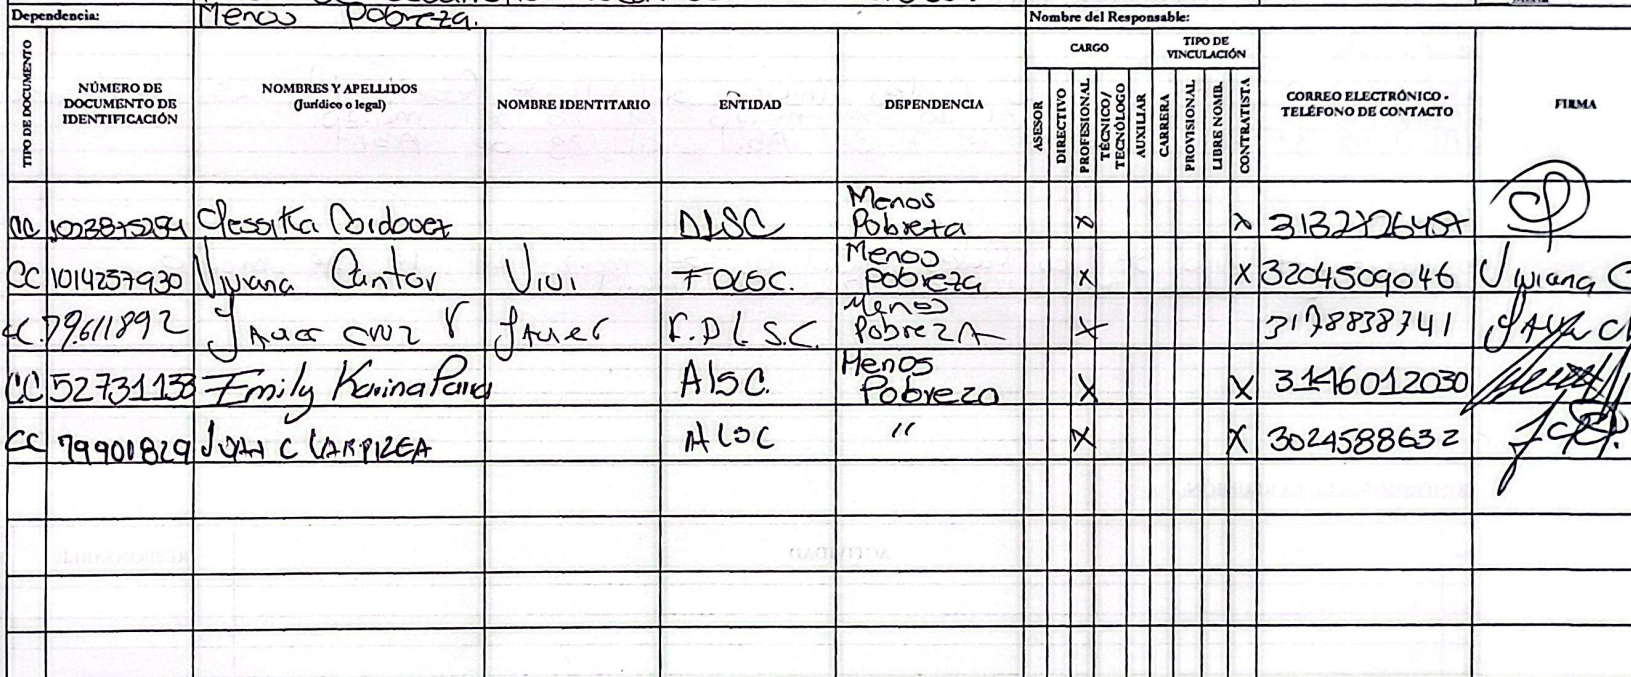 Dependencia: Menos Pobreza. Nombre del Responsable:
TIPO DE DOCUMENTO
NÚMERO DE DOCUMENTO DE IDENTIFICACIÓN
NOMBRES Y APELLIDOS (Jurídico o legal)
NOMBRE IDENTITARIO
ENTIDAD
DEPENDENCIA
CARGO
ASESOR
DIRECTIVO
PROFESIONAL
TÉCNICO/ TECNÓLOGO
AUXILIAR
TIPO DE VINCULACIÓN
CARRERA
PROVISIONAL
LIBRE NOMB.
CONTRATISTA
CORREO ELECTRÓNICO - TELÉFONO DE CONTACTO
FIRMA
CC Menos Pobreza x x
CC 1014257930 Viviana Cantor Vivi FDLSC. Menos Pobreza X X 3204509046 Viviana C
CC. 79.611892 Menos PobrezA X 3178838741
CC 52731133 Emily Karina ALSC. Menos Pobreza X X 3146012030
CC 79901829 JUAN C ALSC " X X 3024588632